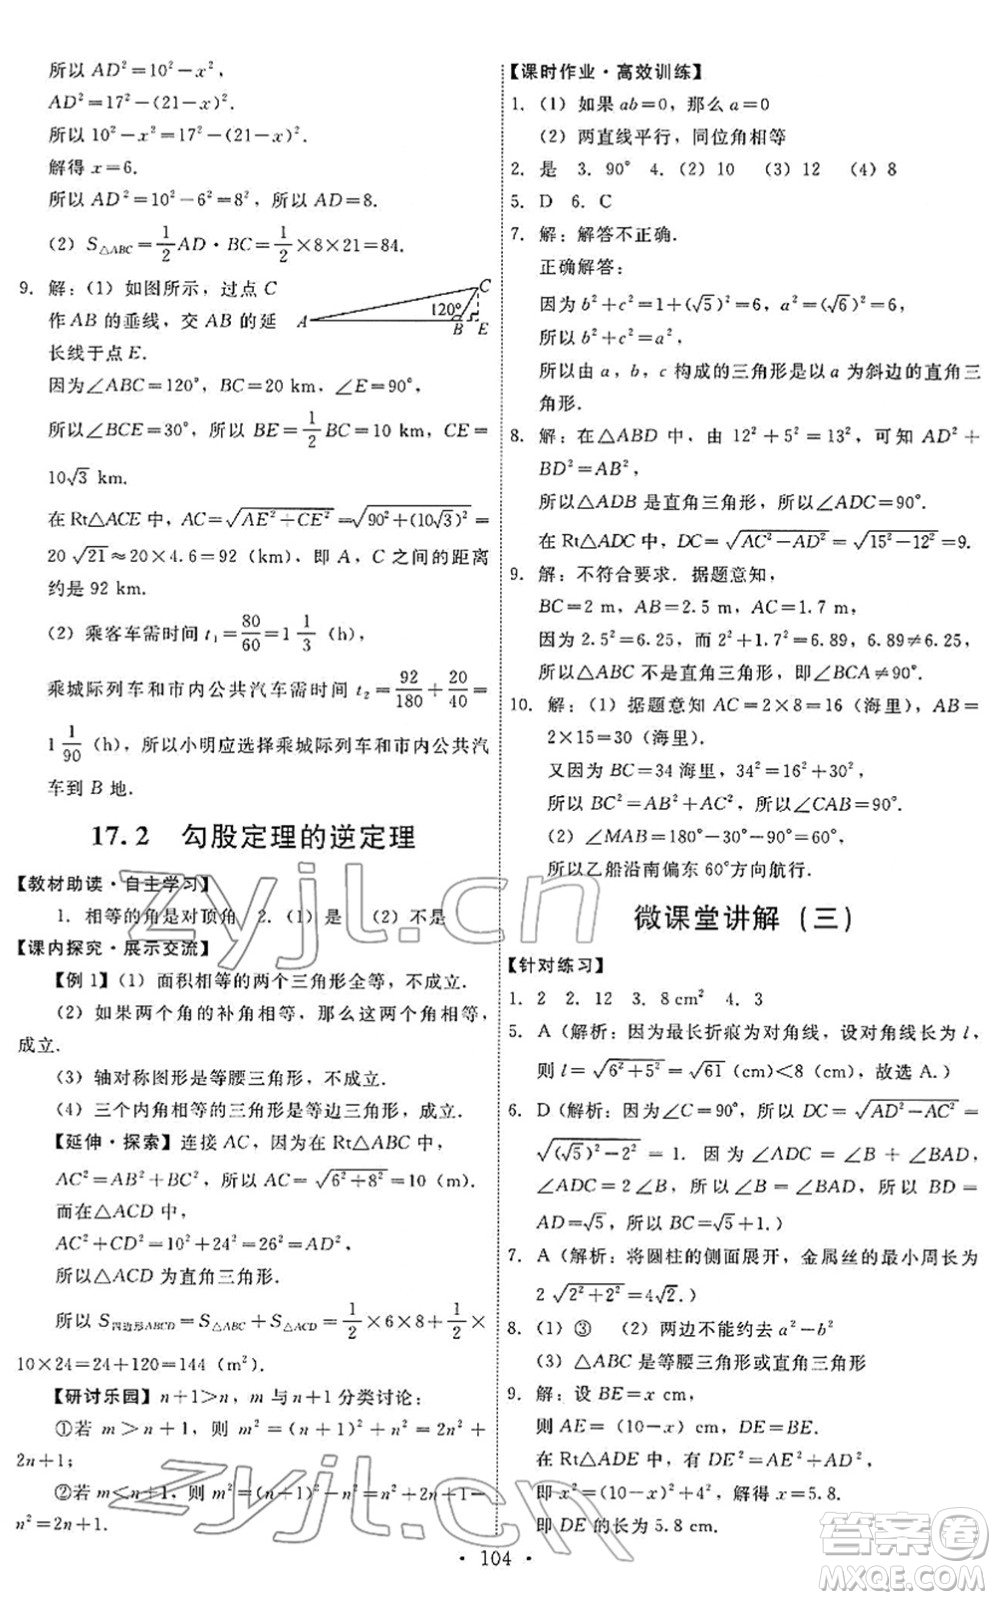 所以 AD²=10²-x²,
AD²=17²-(21-x)².
所以 10²-x²=17²-(21-x)².
解得 x=6.
所以 AD²=10²-6²=8²,所以 AD=8.
(2) S△ABC=1/2 AD·BC=1/2×8×21=84.
9. 解:(1) 如图所示,过点 C
作 AB 的垂线,交 AB 的延
长线于点 E.
A 120° B E C
因为∠ABC=120°,BC=20 km,∠E=90°,
所以∠BCE=30°,所以 BE=1/2 BC=10 km,CE=
10√3 km.
在 Rt△ACE 中,AC=√(AE²+CE²)=√(90²+(10√3)²)=
20√21≈20×4.6=92 (km),即 A,C 之间的距离
约是 92 km.
(2) 乘客车需时间 t₁=80/60=1 1/3 (h),
乘城际列车和市内公共汽车需时间 t₂=92/180+20/40=
1 1/90 (h),所以小明应选择乘城际列车和市内公共汽
车到 B 地.
17.2 勾股定理的逆定理
【教材助读·自主学习】
1. 相等的角是对顶角 2. (1) 是 (2) 不是
【课内探究·展示交流】
【例 1】(1) 面积相等的两个三角形全等,不成立.
(2) 如果两个角的补角相等,那么这两个角相等,
成立.
(3) 轴对称图形是等腰三角形,不成立.
(4) 三个内角相等的三角形是等边三角形,成立.
【延伸·探索】连接 AC,因为在 Rt△ABC 中,
AC²=AB²+BC²,所以 AC=√(6²+8²)=10 (m).
而在△ACD 中,
AC²+CD²=10²+24²=26²=AD²,
所以△ACD 为直角三角形.
所以 S四边形ABCD=S△ABC+S△ACD=1/2×6×8+1/2×
10×24=24+120=144 (m²).
【研讨乐园】n+1>n,m 与 n+1 分类讨论:
①若 m>n+1,则 m²=(n+1)²+n²=2n²+
2n+1;
②若 m<n+1,则 m²=(n+1)²-n²=2n+1.
n²=2n+1.
【课时作业·高效训练】
1. (1) 如果 ab=0,那么 a=0
(2) 两直线平行,同位角相等
2. 是 3. 90° 4. (2) 10 (3) 12 (4) 8
5. D 6. C
7. 解:解答不正确.
正确解答:
因为 b²+c²=1+(√5)²=6,a²=(√6)²=6,
所以 b²+c²=a²,
所以由 a,b,c 构成的三角形是以 a 为斜边的直角三
角形.
8. 解:在△ABD 中,由 12²+5²=13²,可知 AD²+
BD²=AB²,
所以△ADB 是直角三角形,所以∠ADC=90°.
在 Rt△ADC 中,DC=√(AC²-AD²)=√(15²-12²)=9.
9. 解:不符合要求.据题意知,
BC=2 m,AB=2.5 m,AC=1.7 m,
因为 2.5²=6.25,而 2²+1.7²=6.89,6.89≠6.25,
所以△ABC 不是直角三角形,即∠BCA≠90°.
10. 解:(1) 据题意知 AC=2×8=16 (海里),AB=
2×15=30 (海里).
又因为 BC=34 海里,34²=16²+30²,
所以 BC²=AB²+AC²,所以∠CAB=90°.
(2) ∠MAB=180°-30°-90°=60°,
所以乙船沿南偏东 60°方向航行.
微课堂讲解(三)
【针对练习】
1. 2 2. 12 3. 8 cm² 4. 3
5. A (解析:因为最长折痕为对角线,设对角线长为 l,
则 l=√(6²+5²)=√61 (cm)<8 (cm),故选 A.)
6. D (解析:因为∠C=90°,所以 DC=√(AD²-AC²)=
√((√5)²-2²)=1.因为∠ADC=∠B+∠BAD,
∠ADC=2∠B,所以∠B=∠BAD,所以 BD=
AD=√5,所以 BC=√5+1.)
7. A (解析:将圆柱的侧面展开,金属丝的最小周长为
2√(2²+2²)=4√2.)
8. (1) ③ (2) 两边不能约去 a²-b²
(3) △ABC 是等腰三角形或直角三角形
9. 解:设 BE=x cm,
则 AE=(10-x) cm,DE=BE.
在 Rt△ADE 中,有 DE²=AE²+AD²,
即 x²=(10-x)²+4²,解得 x=5.8.
即 DE 的长为 5.8 cm.
· 104 ·
zyjl.cn
zyjl.cn
答案圈
MXQE.COM